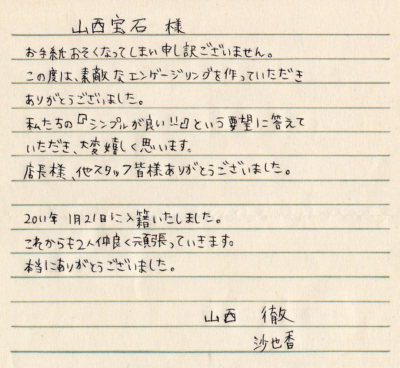 山西宝石 様
お手紙おそくなってしまい申し訳ございません。
この度は、素敵なエンゲージリングを作っていただき
ありがとうございました。
私たちの『シンプルが良い!!』という要望に答えて
いただき、大変嬉しく思います。
店長様、他スタッフ皆様ありがとうございました。
2011年 1月21日に入籍いたしました。
これからも2人仲良く頑張っていきます。
本当にありがとうございました。
山西 徹
沙也香